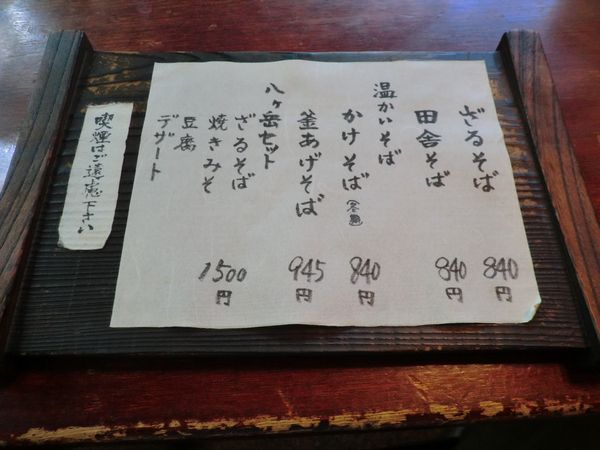 ざるそば 840円
田舎そば 840円
温かいそば
かけそば 840円
釜あげそば 945円
八ヶ岳セット
ざるそば
焼きみそ 1500円
豆腐
デザート
喫煙はご遠慮下さい